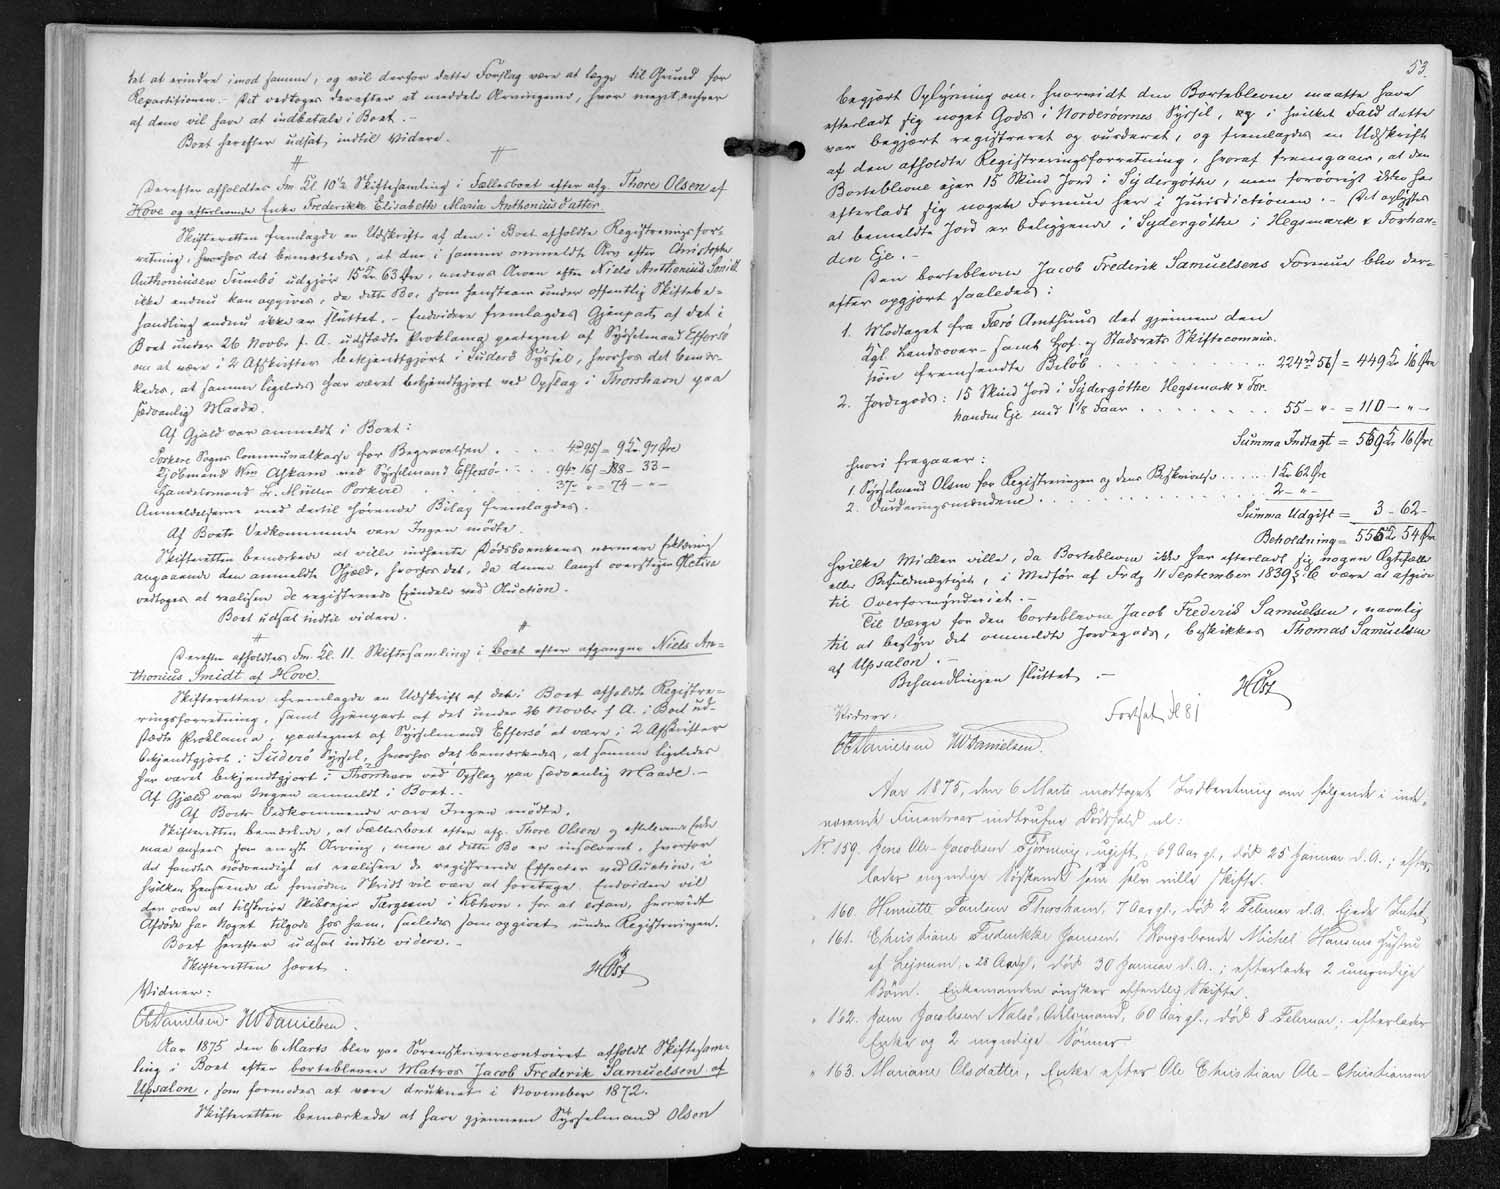 tet at erindre imod samme, og vil derfor dette Forslag være at lægge til Grund for
Repartitionen. – Det vedtoges derefter at meddele Arvingerne, hvor meget enhver
af dem vil have at indbetale i Boet. –
Boet herefter udsat indtil videre.
Derefter afholdtes Fm. Kl. 10½ Skiftesamling i Fællesboet efter afg. Thore Olsen af
Hove og efterlevende Enke Frederikke Elisabeth Maria Anthoniusdatter.
Skifteretten fremlagde en Udskrift af den i Boet afholdte Registreringsfor-
retning, hvorhos det bemærkedes, at den i samme ommeldte Arv efter Christophe
Anthoniusen Sumbö udgjör 15 Kr 63 Øre, medens Arven efter Niels Anthonius Smidt
ikke endnu kan opgives, da dette Bo, som henstaar under offentlig Skiftebe-
handling endnu ikke er sluttet. – Endvidere fremlagdes Gjenpart af det i
Boet under 26 Novbr f. A. udstædte Proklama paategnet af Sysselmand Effersö
om at være i 2 Afskrifter bekjendtgjort i Suderö Syssel, hvorhos det bemær-
kedes, at samme ligeledes har været bekjendtgjort ved Opslag i Thorshavn paa
sædvanlig Maade.
Af Gjæld var anmeldt i Boet:
Porkere Sogns Communalkasse for Begravelsen . . . . 4rd 95 / = 9 Kr 97 Øre
Kjöbmand Wm Askam ved Sysselmand Effersöe . . . 94 – 16 / – 188 – 33 –
Handelsmand L. Müller Porkere . . . . 37 – " = 74 – " –
Anmeldelserne med dertil hørende Bilag fremlagdes.
Af Boets Vedkommende var Ingen mödte.
Skifteretten bemærkede at ville indhente Dödsboenkens nærmere Erklæring
angaaende den anmeldte Gjæld, hvorhos det, da denne langt overstiger Activa
vedtoges at realisere de registrerede Ejendele ved Auction.
Boet udsat indtil videre.
Derefter afholdtes Fm. Kl. 11. Skiftesamling i Boet efter afgangne Niels An-
thonius Smidt af Hove.
Skifteretten fremlagde en Udskrift af det i Boet afholdte Registre-
ringsforretning, samt Gjenpart af det under 26 Novbr f A. i Boet ud-
stædte Proklama, paategnet af Sysselmand Effersö at være i 2 Afskrifter
bekjendtgjort i Suderö Syssel, hvorhos det bemærkedes, at samme ligeledes
har været bekjendtgjort i Thorshavn ved Opslag paa sædvanlig Maade. –
Af Gjæld var Ingen anmeldt i Boet. –
Af Boets Vedkommende vare Ingen mödte.
Skifteretten bemærkede, at Fællesboet efter afg. Thore Olsen og efterlevende Enke
maa ansees som eneste Arving, men at dette Bo er insolvent, hvorfor
det fandtes nödvendigt at realisere de registrerede Effecter ved Auction, i
hvilken Henseende de fornödne Skridt vil være at foretage. Endvidere vil
der være at tilskrive Skibsejer Jørgensen i Kbhvn. for at erfare, hvorvidt
Afdöde har Noget tilgode hos ham, saaledes som opgivet under Registreringen.
Boet herefter udsat indtil videre. –
Skifteretten hævet.
HØst
Vidner:
OC Danielsen HW Danielsen.
Aar 1875 den 6 Marts blev paa Sorenskrivercontoiret afholdt Skiftesam-
ling i Boet efter bortebleven Matros Jacob Frederik Samuelsen af
Upsalon, som formodes at være druknet i November 1872.
Skifteretten bemærkede at have gjennem Sysselmand Olsen
53.
begjært Oplysning om, hvorvidt den Borteblevne maatte have
efterladt sig noget Gods i Norderöernes Syssel, og i hvilket Fald dette
var begjært registreret og vurderet, og fremlagdes en Udskrift
af den afholdte Registreringsforretning, hvoraf fremgaaer, at den
Borteblevne ejer 15 Skind Jord i Sydergöthe, men forövrigt ikke har
efterladt sig nogen Formue her i Jurisdictionen. – Det oplystes
at bemeldte Jord er beliggende i Sydergöthe i Hegsmark & Forhan-
den Eje. –
Den borteblevne Jacob Frederik Samuelsens Formue blev der-
efter opgjort saaledes:
1. Modtaget fra Færö Amthuus det gjennem den
Kgl. Landsover- samt Hof- og Stadsrets Skiftecommis-
sion fremsendte Belöb . . . . . . . . 224rd 56 / = 449 Kr 16 Øre
2. Jordegods: 15 Skind Jord i Sydergöthe Hegsmark & For-
handen Eje med 1⅛ Faar . . . . . . . . 55 – " – = 110 – " –
Summa Indtægt = 559 Kr 16 Øre
hvori fragaaer:
1. Sysselmand Olsen for Registreringen og dens Beskrivelse . . . . . 1 Kr 62 Øre
2. Vurderingsmændene . . . . . . . . 2 – " –
Summa Udgift = 3 – 62 –
Beholdning = 555 Kr 54 Øre
hvilke Midler ville, da Borteblevne ikke har efterladt sig nogen Ægtefælle
eller Befuldmægtiget, i Medfør af Frdg 11 September 1839 § 6 være at afgive
til Overformynderiet. –
Til Værge for den borteblevne Jacob Frederik Samuelsen, navnlig
til at bestyre det ommeldte Jordegods, beskikkes Thomas Samuelsen
af Upsalon. –
Behandlingen sluttet. –
HØst
Vidner:
Fortsat S 81
OC Danielsen HW Danielsen.
Aar 1875, den 6 Marts modtoges Indberetning om følgende i inde-
værende Finantsaar indtrufne Dödsfald nl:
No 159. Jens Ole Jacobsen Fjörmoig, ugift, 69 Aar gl., död 25 Januar d.A.; efter-
lader myndige Söskende som selv ville skifte.
" 160. Henriette Poulsen Thorshavn, 7 Aar gl., död 2 Februar d.A. Ejede Intet.
" 161. Christiane Frederikke Joensen, Kongsbonde Michel Hansens Hustru
af Lejnum, 28 Aar gl., död 30 Januar d.A.; efterlader 2 umyndige
Börn. Enkemanden önsker offentlig Skifte.
" 162. Joen Jacobsen Nolsö, Odelsmand, 60 Aar gl., död 8 Februar; efterlader
Enke og 2 myndige Sönner.
" 163. Mariane Olsdatter, Enke efter Ole Christian Ole-Christiansen